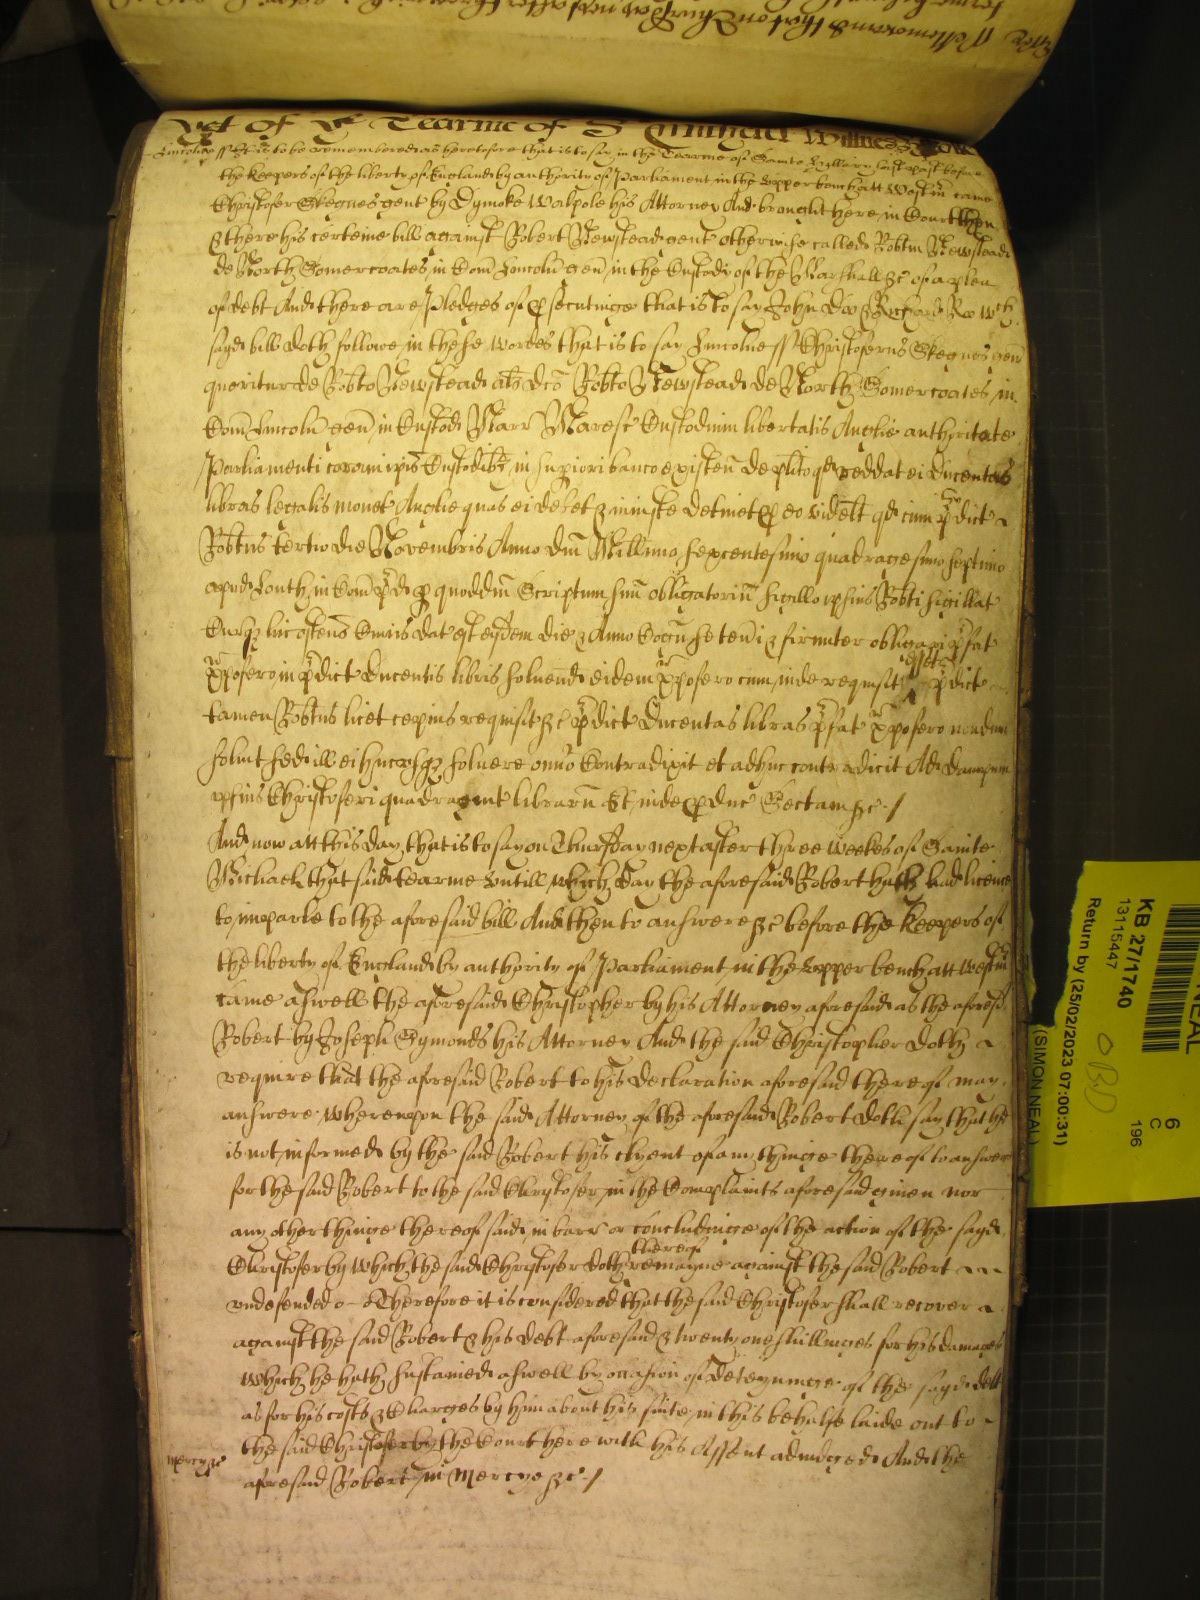 Yet Of Ye Tearme of S Michael Wittnes
Lincolne ss It is to be remembered as heretofore that is to say in the Tearme of Sainte Hyllary last past before
the Keepers of the liberty of England by authority of Parliament in the vpper bench att Westm̃ came
Christofer Skegnes gent by Dymoke Walpole his Attorney And brought here in Court then
& there his certeine bill against Robert Newstead gent otherwise called Robtm Newstead
de North Somercoates in Com̃ Lincoln̄ gen̄ in the Custody of the Marshall &c of a plea
of debt And there are Pledges of ꝓsecutinge that is to say John Doo & Richard Roo wch
sayd bill doth followe in these wordes that is to say Lincolne ss Christoferus Skegnes gen̄
queritur de Robto Newstead als̄ dc̄o Robto Newstead de North Somercoates in
Com̄ Lincoln̄ gen̄ in Custod Marr Maresc̄ Custodium libertatis Anglie authoritate
Parliamenti coram ip̄is Custodibȝ in sup̄iori banco existen̄ de pl̄ito qd reddat ei ducentas
libras legalis monet Anglie quas ei debet & iniuste detinet ꝓ eo videl̄t qd cum p̄dict
Robtus tertio die Novembris Anno Dn̄i Millimo sexcentesimo quadragesimo septimo
apud Louth in Com̄ p̄d ꝑ quoddm̄ Scriptum suū obligatoriū sigillo ipsius Robti sigillat
Curqȝ hic ostens̄ Cuius dat est eisdem die & Anno Cogn̄ se teneri & firmiter obligari p̄fat
Xp̄ofero in p̄dict ducentis libris solvend eidem Xp̄ofero cum inde requisit esset p̄dict
tamen Robtus licet sepius requisit &c p̄dict ducentas libras p̄fat Xp̄ofero nondum
soluit sed ill ei hucusqȝ soluere om̄io Contradixit et adhuc contradicit Ad dampnum
ipsius Christoferi quadragint librarū Et inde ꝓduc Sectam &c /
And now att this day that is to say on Thursday next after three weekes of Sainte
Michaell that said tearme vntill which day the aforesaid Robert hath had licence
to imparle to the aforesaid bill And then to answere &c before the Keepers of
the liberty of England by authority of Parliament in the vpper bench att Westm̄
came aswell the aforesaid Christopher by his Attorney aforesaid as the aforesd
Robert by Joseph Symonds his Attorney And the said Christopher doth
require that the aforesaid Robert to his declaration aforesaid thereof may
answere wherevpon the said Attorney of the aforesaid Robert doth say that he
is not informed by the said Robert his clyent of any thinge thereof to answer
for the said Robert to the said Christofer in the Complaints aforesaid given nor
any other thinge thereof said in barr or concludinge of the action of the sayd
Christofer by which the said Christofer doth thereof remayne against the said Robert
vndefended Therefore it is considered that the said Christofer shall recover
against the said Robert & his debt aforesaid & twenty one shillinges for his damages
which he hath sustained aswell by occasion of deteyninge of the sayd debt
as for his costs & Charges by him about his suite in this behalfe laide out to
the said Christofer by the Court here with his Assent adiudged And the
Mercy &c
aforesaid Robert in Mercye &c /
KB 27/1740
13115447
Return by (25/02/2023 07:00:31)
(SIMON NEAL)
6
C
196